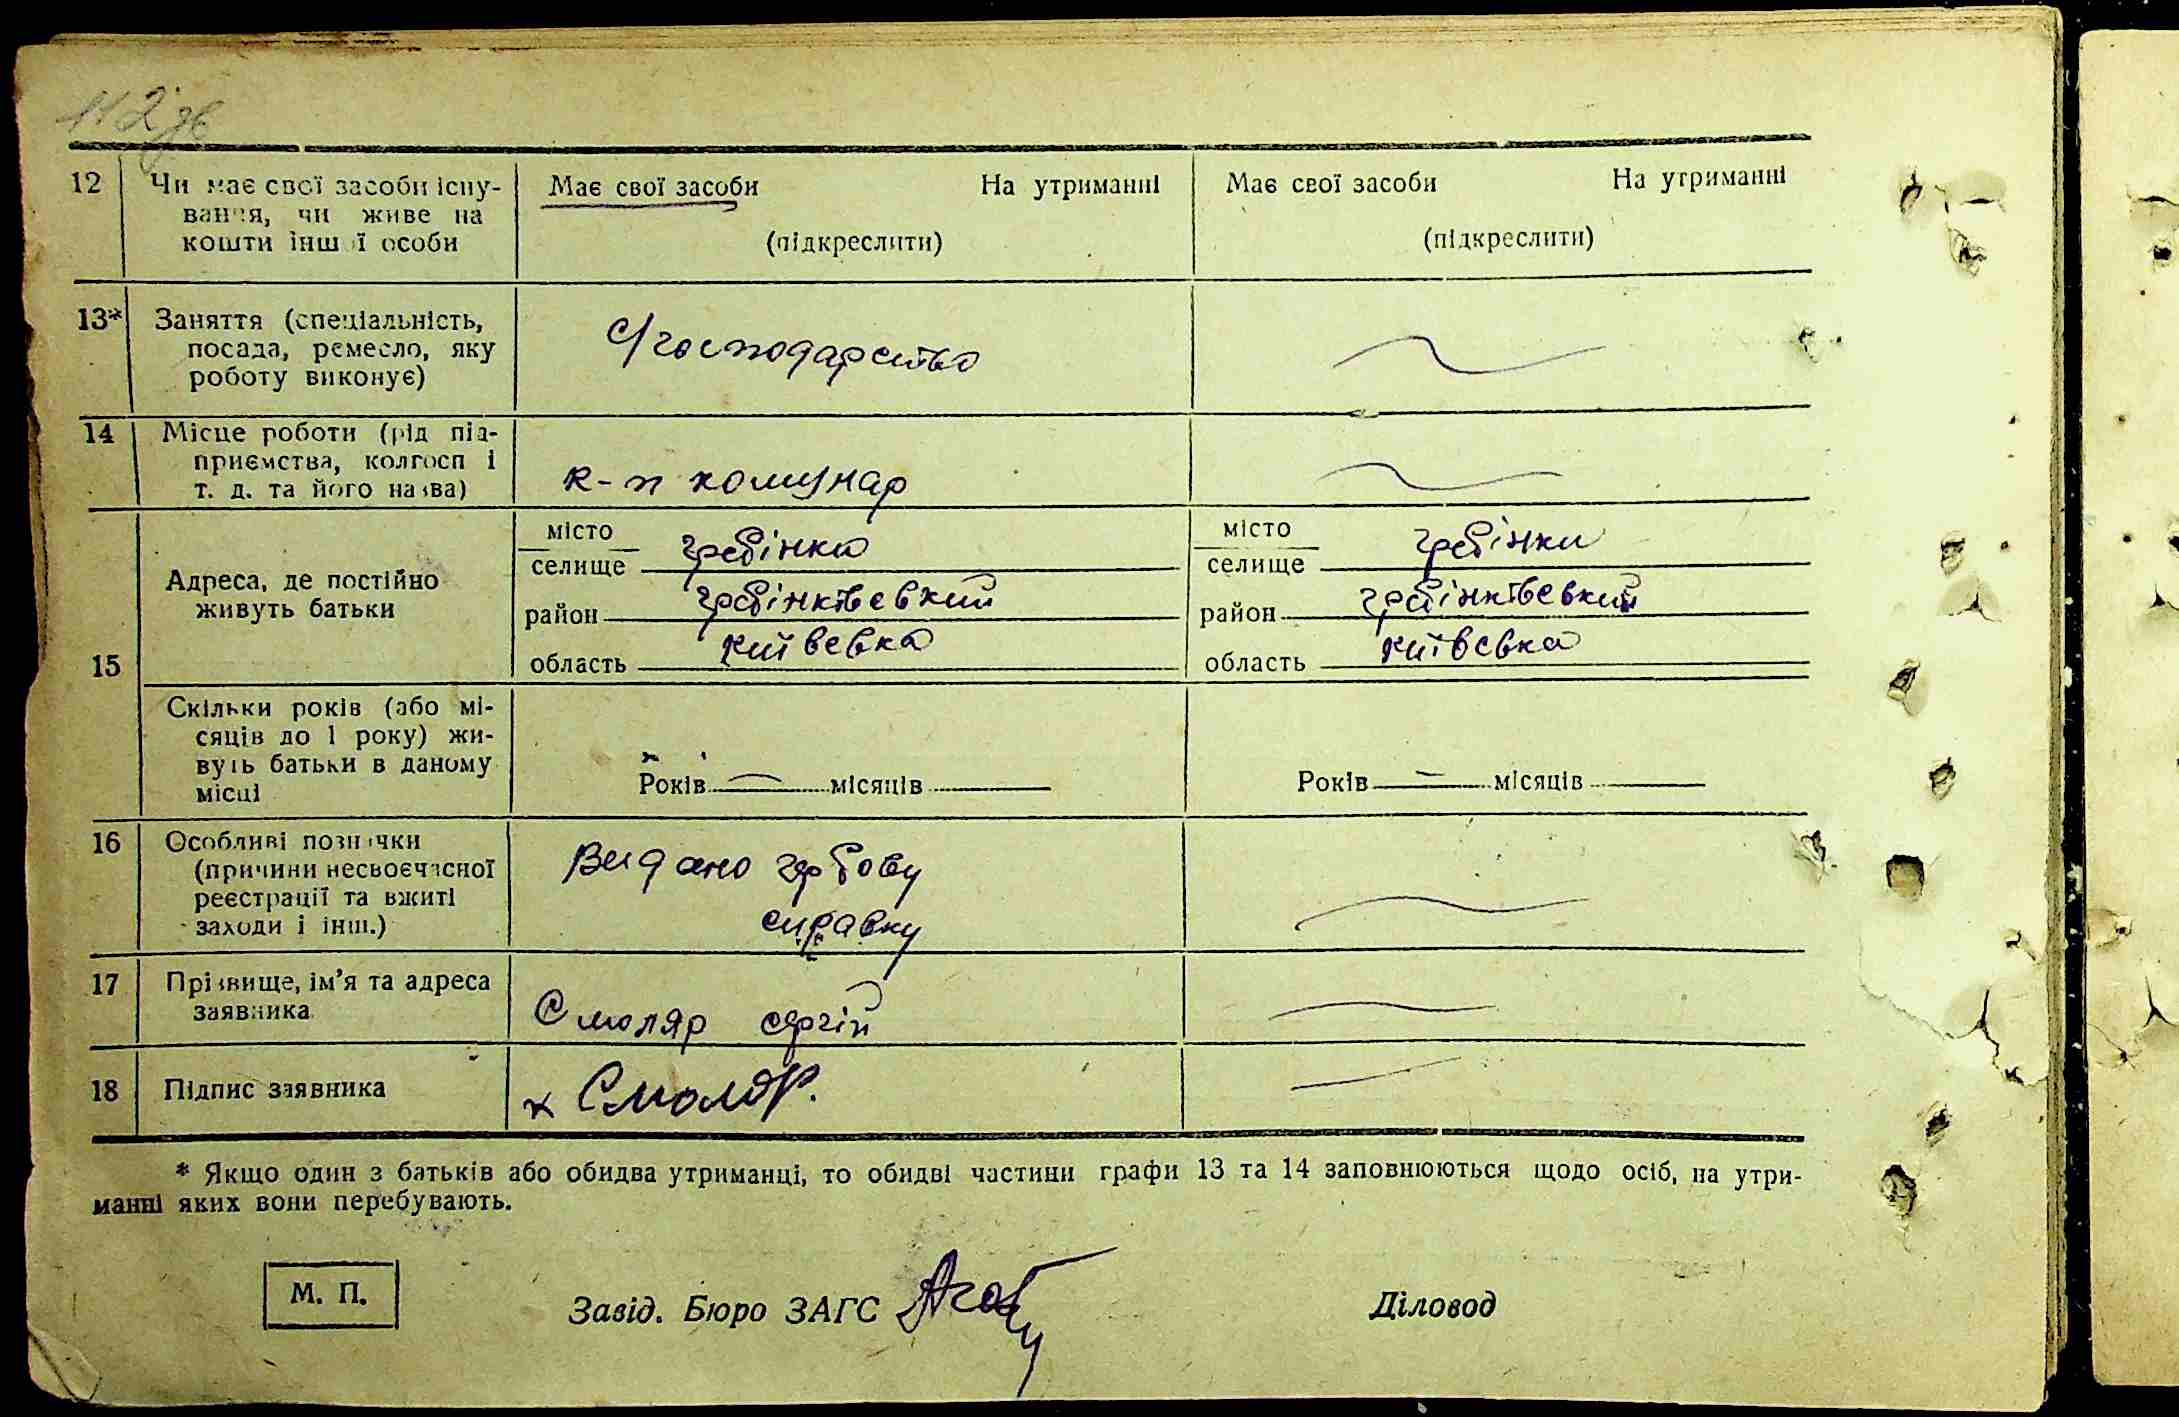 112 зв
12 Чи має свої засоби існу- Має свої засоби На утриманні Має свої засоби На утриманні
вання, чи живе на
кошти інш ї особи (підкреслити) (підкреслити)
13* Заняття (спеціальність,
посада, ремесло, яку с/господарство
роботу виконує)
14 Місце роботи (рід під-
приємства, колгосп і
т. д. та його назва) к-п комунар
15 Адреса, де постійно
живуть батьки
місто гребінки місто гребінки
селище селище
район гребінківський район гребінківський
область київська область київська
Скільки років (або мі-
сяців до 1 року) жи-
вуть батьки в даному Років — місяців Років — місяців
місці
16 Особливі познчки Видано гербову
(причини несвоєчасної
реєстрації та вжиті справку
заходи і інш.)
17 Прізвище, ім'я та адреса
заявника Смоляр сергій
18 Підпис заявника х Смоляр.
* Якщо один з батьків або обидва утриманці, то обидві частини графи 13 та 14 заповнюються щодо осіб, на утри-
манні яких вони перебувають.
М. П. Завід. Бюро ЗАГС Діловод